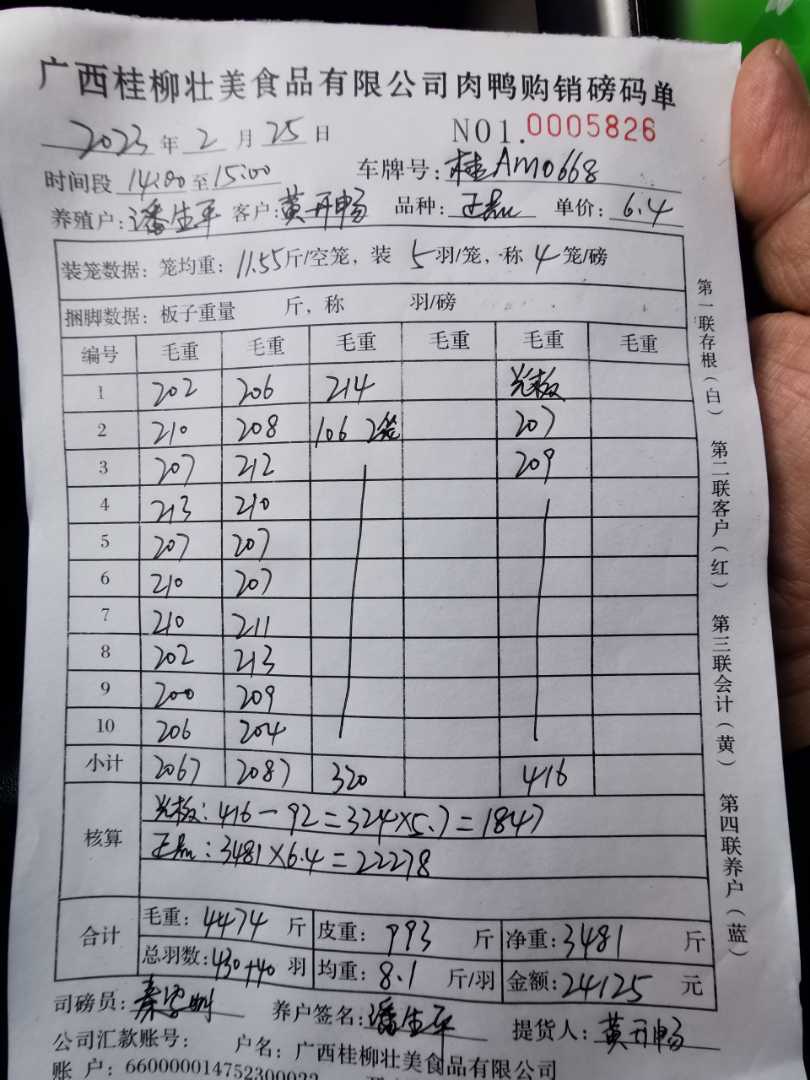 广西桂柳壮美食品有限公司肉鸭购销磅码单
2023年2月25日 NO1.0005826
时间段 14:00至15:00 车牌号:桂AM0668
养殖户:潘生平 客户:黄开畅 品种: 单价:6.4
装笼数据:笼均重:11.55斤/空笼,装 5 羽/笼,称 4 笼/磅
捆脚数据:板子重量 斤,称 羽/磅
编号 毛重 毛重 毛重 毛重 毛重 毛重
1 202 206 214 光板
2 210 208 106 2笼 207
3 207 212 209
4 213 210
5 207 207
6 210 207
7 210 211
8 202 213
9 200 209
10 206 204
小计 2067 2087 320 416
核算
光板:416-92=324×5.7=1847
:3481×6.4=22278
合计
毛重:4474斤 皮重:993斤 净重:3481斤
总羽数:430+40羽 均重:8.1斤/羽 金额:24125元
司磅员: 养户签名:潘生平 提货人:黄开畅
公司汇款账号: 户名:广西桂柳壮美食品有限公司
账 户:660000014752300022
第一联存根(白) 第二联客户(红) 第三联会计(黄) 第四联养户(蓝)